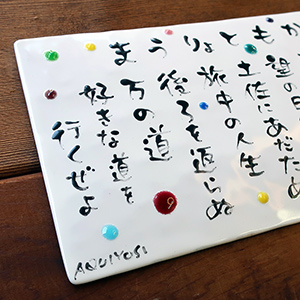 かもとりょうま
土佐にあだたぬ
旅中の人生
後ろを返らぬ
万の道
好きな道を
行くぜよ
AQUIYOSI